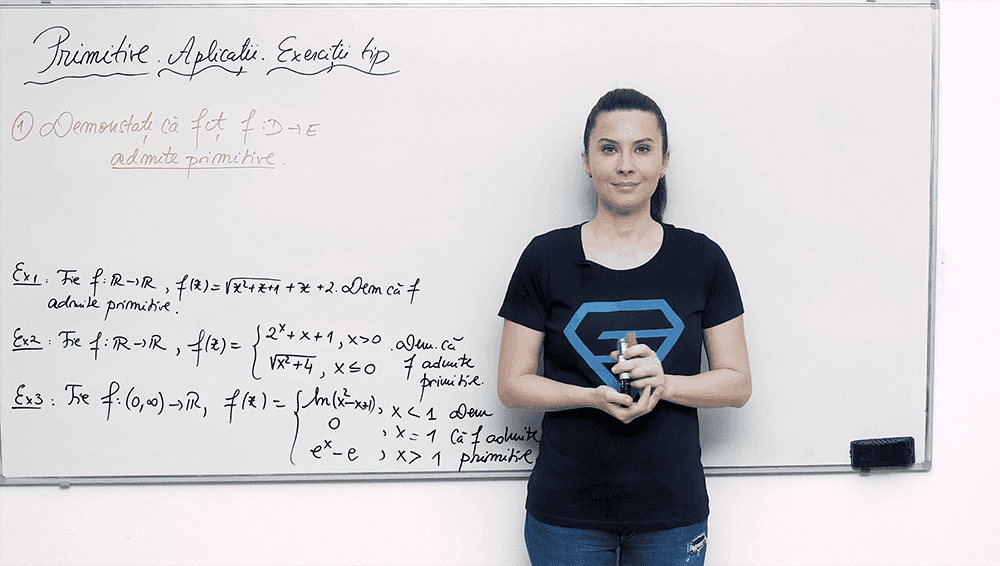 Primitive. Aplicații. Exerciții tip
① Demonstați că fcț f:D→E
admite primitive.
Ex1: Fie f:ℝ→ℝ, f(x)=√(x²+x+1)+x+2. Dem că f
admite primitive.
Ex2: Fie f:ℝ→ℝ, f(x)= { 2ˣ+x+1, x>0 . Dem. că
√(x²+4), x≤0 f admite
primitive.
Ex3: Fie f:(0,∞)→ℝ, f(x)= { ln(x²-x+1), x<1 Dem
0, x=1 că f admite
eˣ-e, x>1 primitive